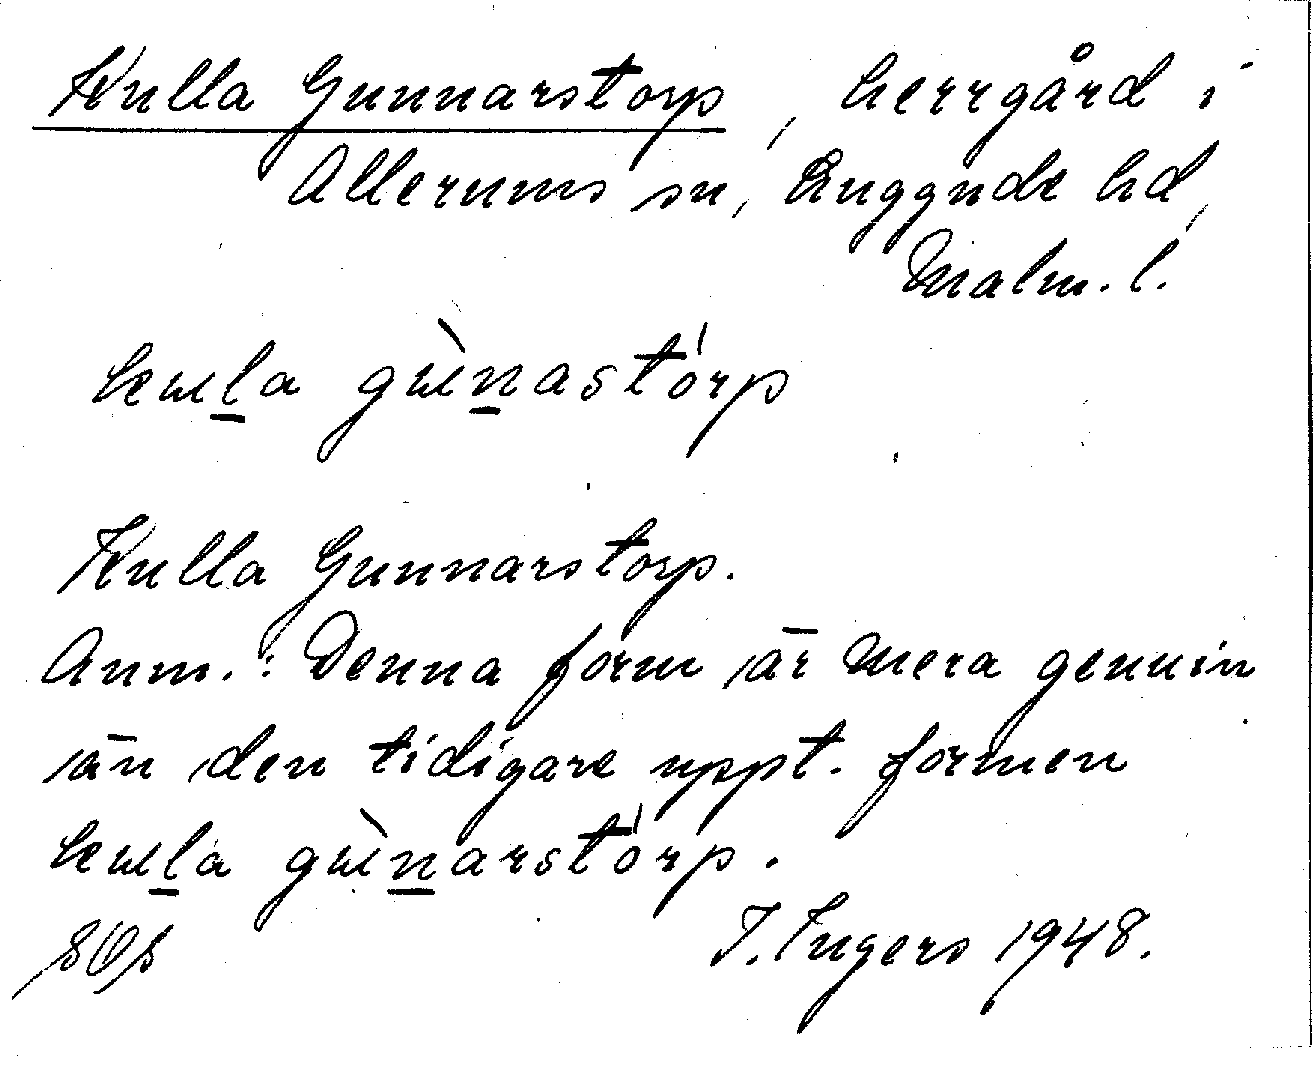 Kulla Gunnarstorp, herrgård i
Allerums sn, Luggude hd,
Malm. l.
kɯl̲a gɯ̀n̲astórp
Kulla Gunnarstorp.
Anm.: Denna form är mera genuin
än den tidigare uppt. formen
kɯl̲a gɯ̀n̲arstórp.
SOS I. Ingers 1948.